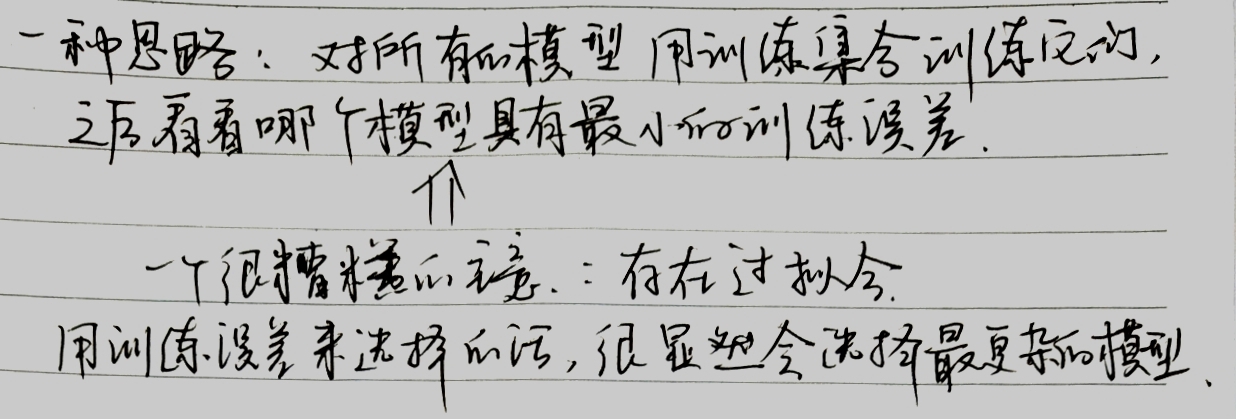 一种思路：对所有的模型用训练集合训练它们，
之后看看哪个模型具有最小的训练误差.
⇑
一个很糟糕的主意.：存在过拟合.
用训练误差来选择的话，很显然会选择最复杂的模型、